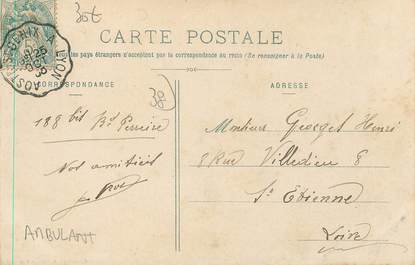 30t
CARTE POSTALE
Tous les pays étrangers n'acceptent pas la correspondance au recto (Se renseigner à la Poste)
CORRESPONDANCE
ADRESSE
38
188 bis Bd Pereire
Nos amitiés
Monsieur Georges Henri
8 Rue Villedieu 8
St Etienne
Loire
AMBULANT
LYON